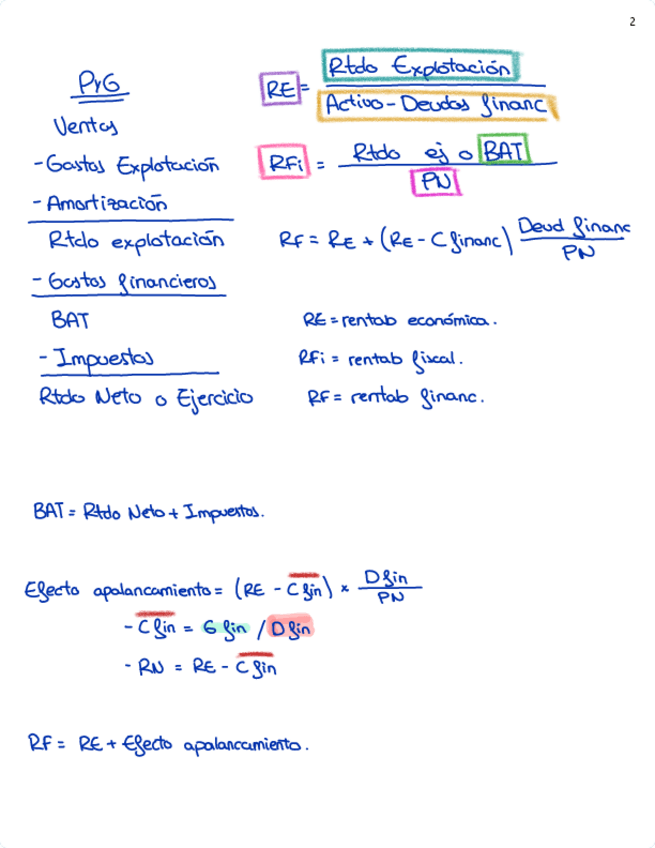 2
PyG
Ventas
- Gastos Explotación
- Amortización
Rtdo explotación
- Gastos financieros
BAT
- Impuestos
Rtdo Neto o Ejercicio
RE = Rtdo Explotación / Activo - Deudas financ
RFi = Rtdo ej o BAT / PN
RF = RE + (RE - C financ) Deud financ / PN
RE = rentab económica.
RFi = rentab fiscal.
RF = rentab financ.
BAT = Rtdo Neto + Impuestos.
Efecto apalancamiento = (RE - C fin) × D fin / PN
- C fin = G fin / D fin
- RN = RE - C fin
RF = RE + Efecto apalancamiento.